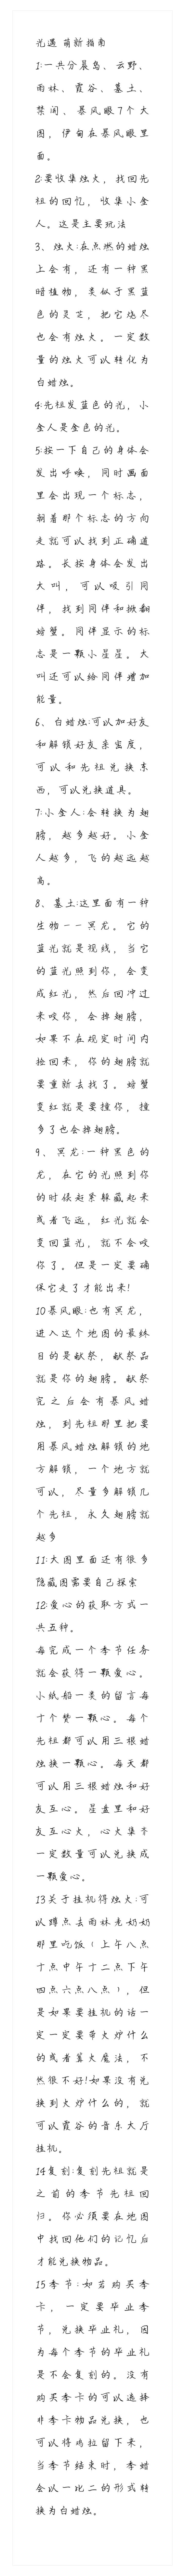 光遇 萌新指南
1:一共分晨岛、云野、
雨林、霞谷、墓土、
禁阁、暴风眼7个大
图，伊甸在暴风眼里
面。
2:要收集烛火，找回先
祖的回忆，收集小金
人。这是主要玩法
3、烛火:在点燃的蜡烛
上会有，还有一种黑
暗植物，类似于黑蓝
色的灵芝，把它烧尽
也会有烛火。一定数
量的烛火可以转化为
白蜡烛。
4:先祖发蓝色的光，小
金人是金色的光。
5:按一下自己的身体会
发出呼唤，同时画面
里会出现一个标志，
朝着那个标志的方向
走就可以找到正确道
路。长按身体会发出
大叫，可以吸引同
伴，找到同伴和掀翻
螃蟹。同伴显示的标
志是一颗小星星。大
叫还可以给同伴增加
能量。
6、白蜡烛:可以加好友
和解锁好友亲密度，
可以和先祖兑换东
西，可以兑换道具。
7:小金人:会转换为翅
膀，越多越好。小金
人越多，飞的越远越
高。
8、墓土:这里面有一种
生物——冥龙。它的
蓝光就是视线，当它
的蓝光照到你，会变
成红光，然后回冲过
来咬你，会掉翅膀，
如果不在规定时间内
捡回来，你的翅膀就
要重新去找了。螃蟹
变红就是要撞你，撞
多了也会掉翅膀。
9、冥龙:一种黑色的
龙，在它的光照到你
的时候赶紧躲藏起来
或者飞远，红光就会
变回蓝光，就不会咬
你了。但是一定要确
保它走了才能出来!
10暴风眼:也有冥龙，
进入这个地图的最终
目的是献祭，献祭品
就是你的翅膀。献祭
完之后会有暴风蜡
烛，到先祖那里把要
用暴风蜡烛解锁的地
方解锁，一个地方就
可以，尽量多解锁几
个先祖，永久翅膀就
越多
11:大图里面还有很多
隐藏图需要自己探索
12:爱心的获取方式一
共五种。
每完成一个季节任务
就会获得一颗爱心。
小纸船一类的留言每
十个赞一颗心。每个
先祖都可以用三根蜡
烛换一颗心。每天都
可以用三根蜡烛和好
友互心。星盘里和好
友互心火，心火集齐
一定数量可以兑换成
一颗爱心。
13关于挂机得烛火:可
以蹲点去雨林老奶奶
那里吃饭（上午八点
十点中午十二点下午
四点六点八点），但
是如果要挂机的话一
定一定要带火炉什么
的或者篝火魔法，不
然很不好!如果没有兑
换到火炉什么的，就
可以霞谷的音乐大厅
挂机。
14复刻:复刻先祖就是
之前的季节先祖回
归。你必须要在地图
中找回他们的记忆后
才能兑换物品。
15季节:如若购买季
卡，一定要毕业季
节，兑换毕业礼，因
为每个季节的毕业礼
是不会复刻的。没有
购买季卡的可以选择
非季卡物品兑换，也
可以将鸡拉留下来，
当季节结束时，季蜡
会以一比二的形式转
换为白蜡烛。